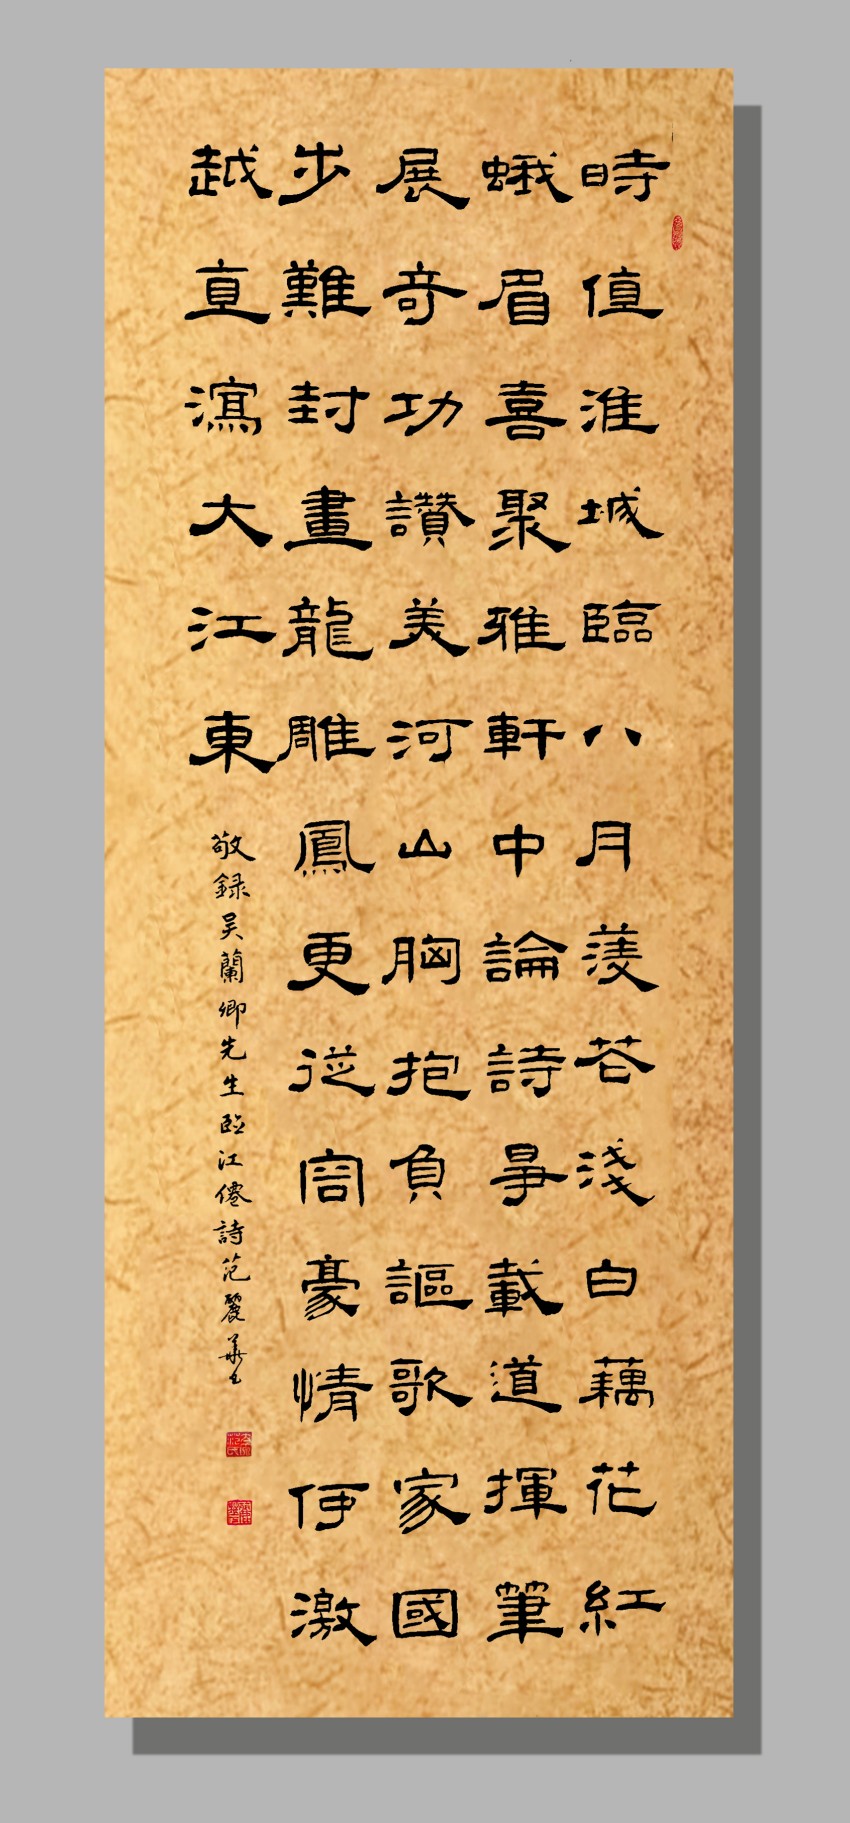 時值淮城臨八月羨淺白藕花紅
蛾眉喜聚雅軒中論詩爭載道揮筆
展奇功讚美河山胸抱負謳歌家國
步難封畫龍雕鳳更從容豪情伊激
越直瀉大江東
敬録吴蘭卿先生臨江僊詩范麗華书